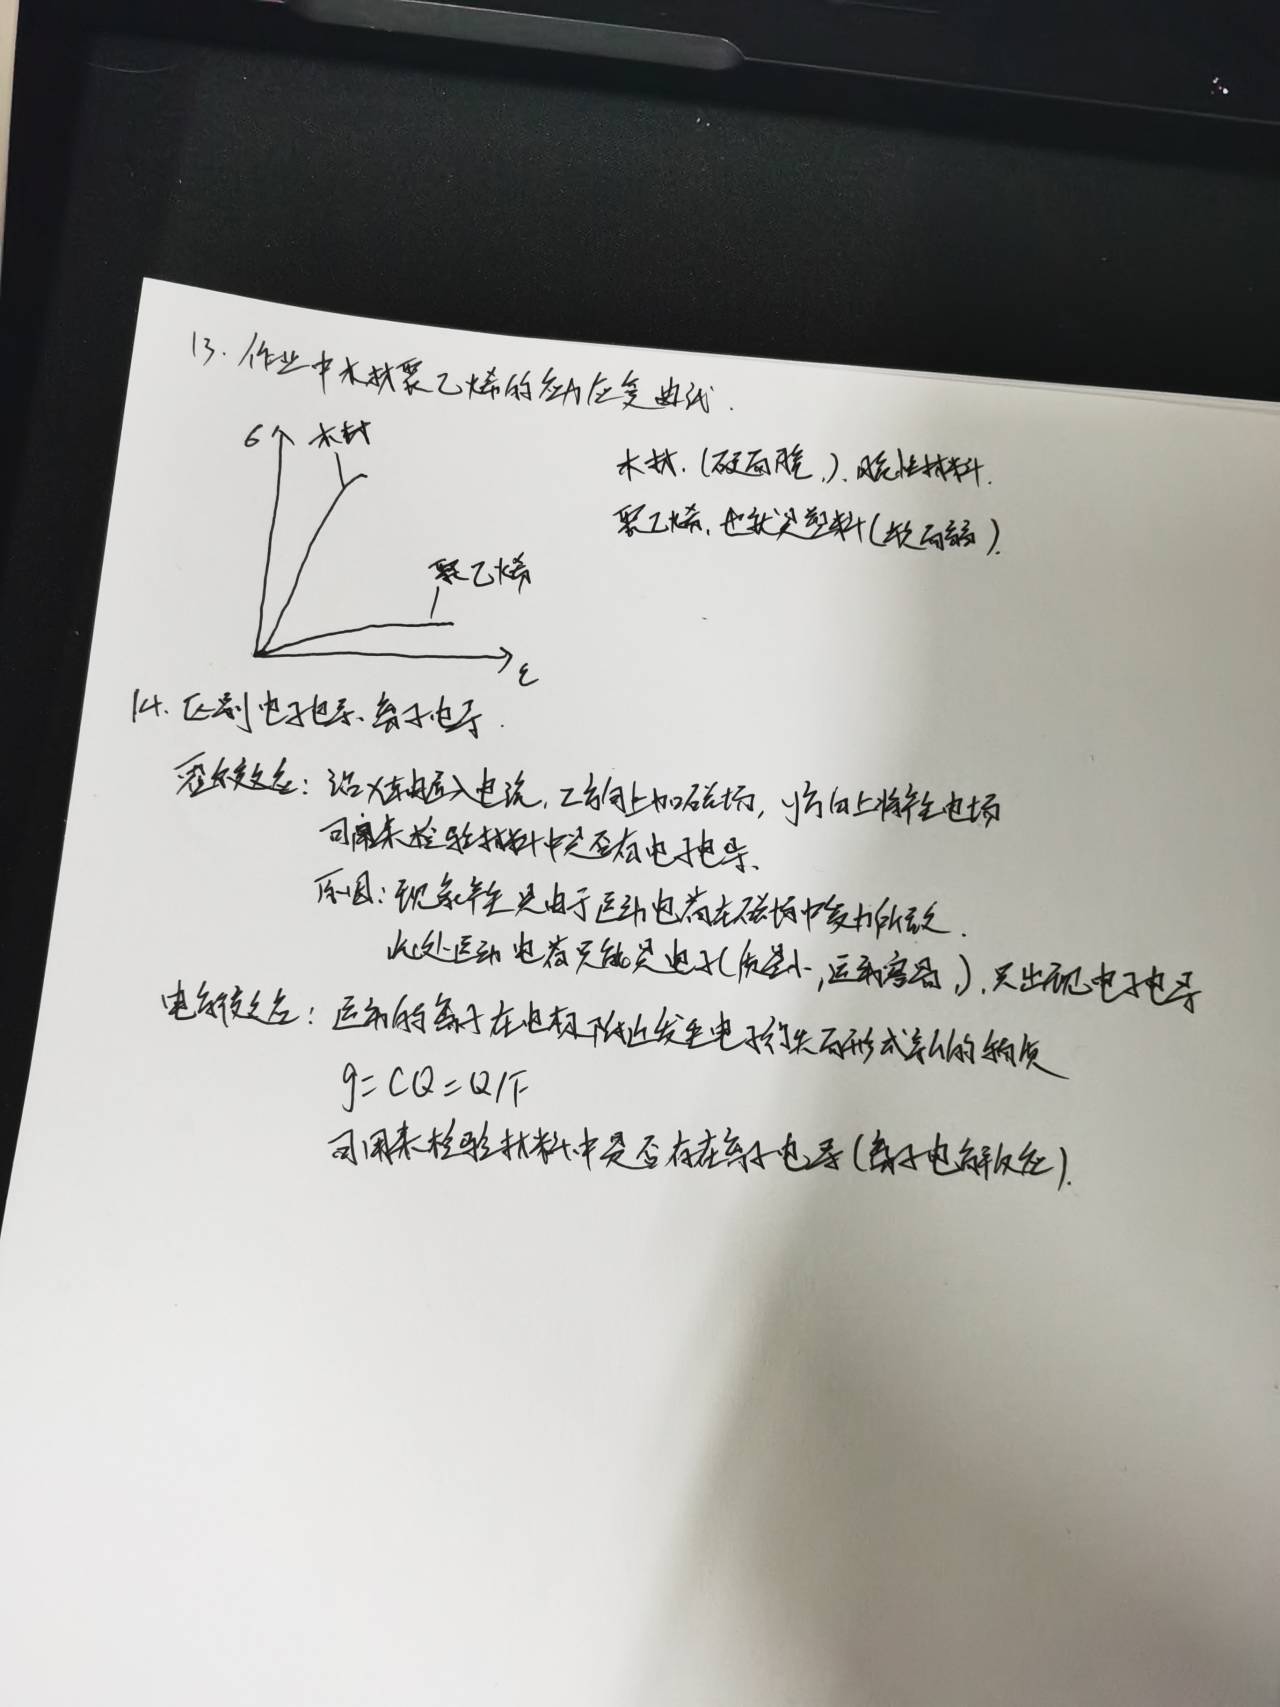 13. 作业中木材聚乙烯的应力应变曲线.
σ 木材
木材.(硬而脆,).脆性材料.
聚乙烯.也就是塑料(软而弱).
聚乙烯
ε
14. 区别电子电导、离子电导.
霍尔效应: 沿X轴通入电流, Z方向上加磁场, y方向上将产生电场
可用来检验材料中是否存在电子电导、
原因: 现象产生是由于运动电荷在磁场中受力所致.
此处运动电荷只能是电子(质量小,运动容易,).只出现电子电导
电解效应: 运动的离子在电极附近发生电子得失而形成新的物质
g = CQ = Q/F
可用来检验材料中是否存在离子电导(离子电解反应).